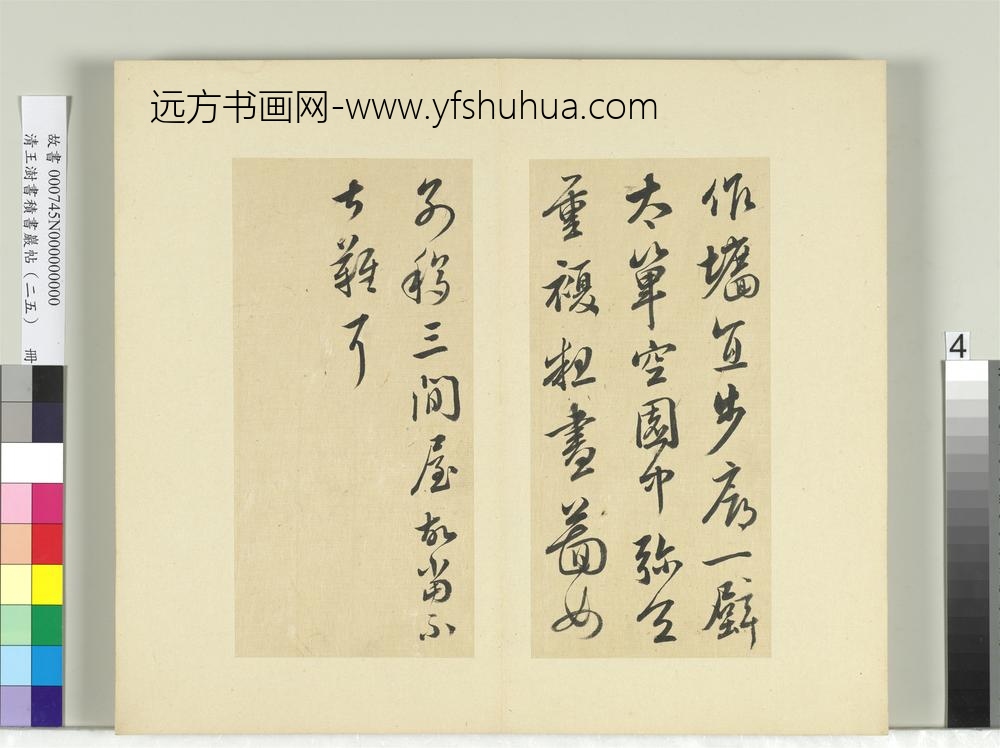 远方书画网-www.yfshuhua.com
作墻宜步廊一壁
太單空園中弥令
重複粗畫圖如
別移三間屋故當不
大難耳
故書 000745N000000000
清王澍書積書巖帖(二五) 冊
4